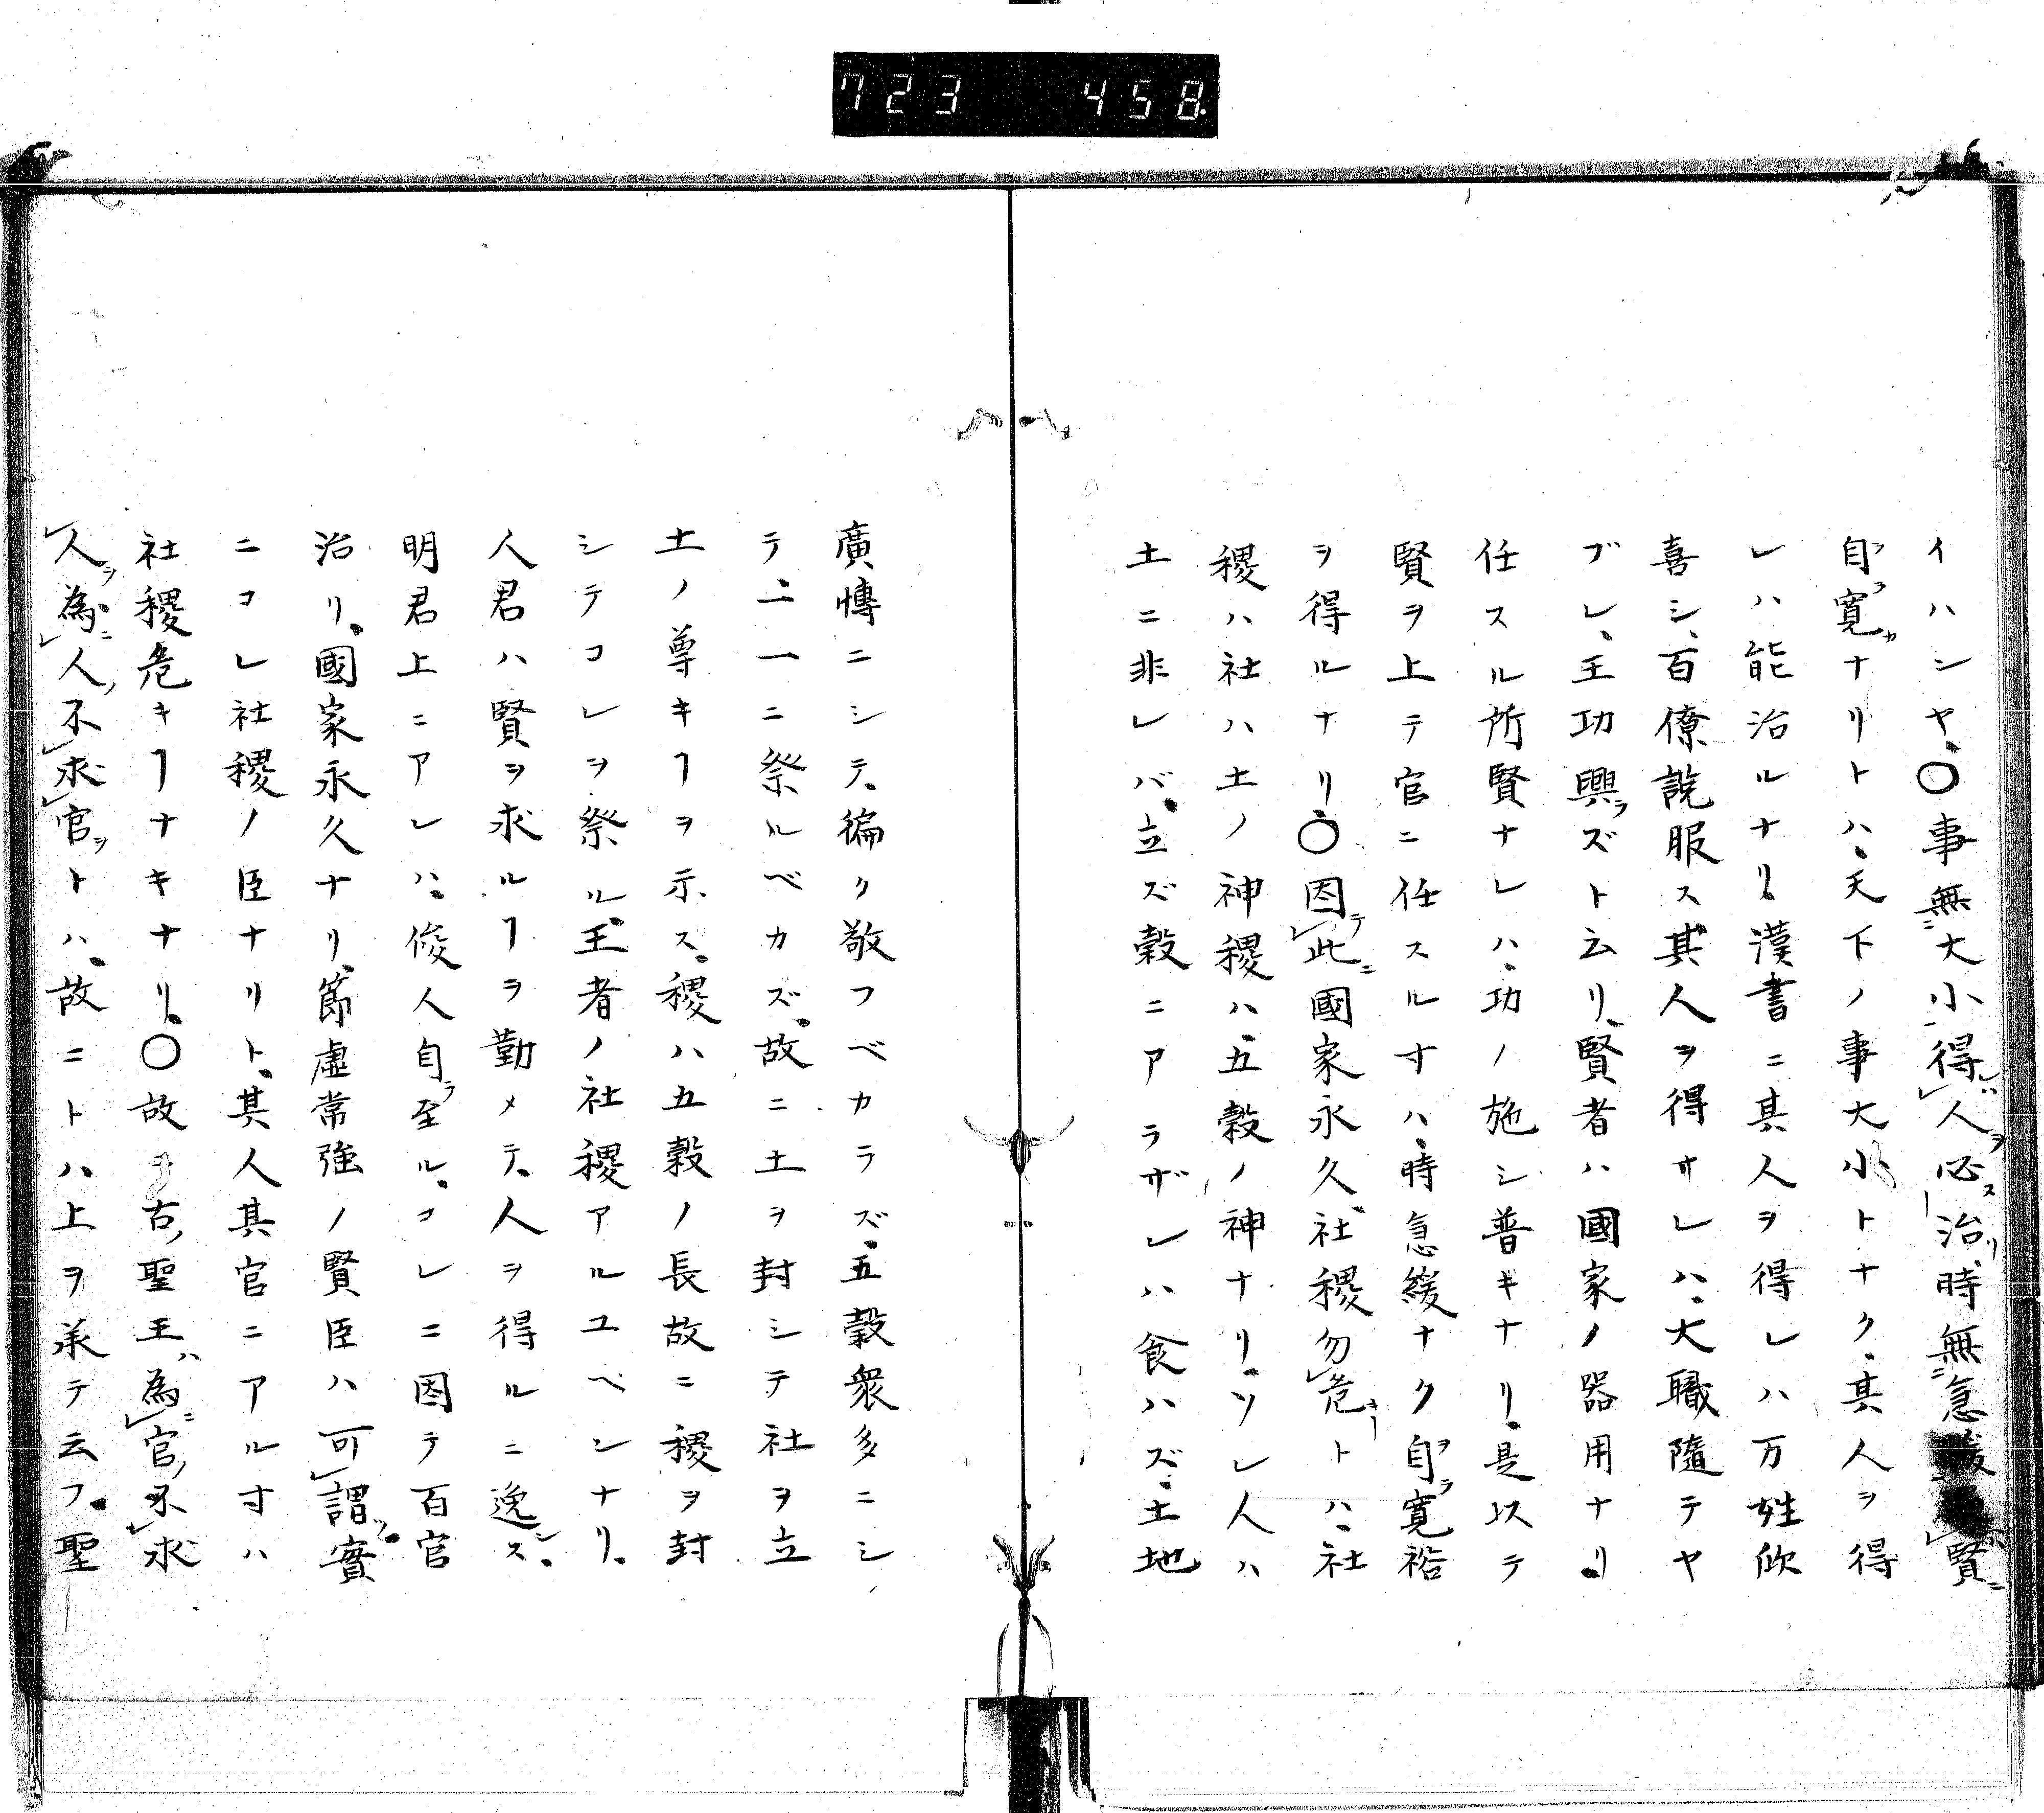 723 458
イハンヤ、〇事無大小得人必治、時無急緩賢
自寛ナリトハ、天下ノ事大小トナク、其人ヲ得
レハ能治ルナリ、漢書ニ其人ヲ得レハ万姓欣
喜シ、百僚説服ス、其人ヲ得サレハ、大職隨テヤ
ブレ、王功興ズト云リ、賢者ハ國家ノ器用ナリ、
任スル所賢ナレハ、功ノ施シ普キナリ、是以テ
賢ヲ上テ官ニ任スル寸ハ、時急緩ナク自寛裕
ヲ得ルナリ、〇因此國家永久、社稷勿危トハ、社
稷ハ社ハ土ノ神稷ハ、五穀ノ神ナリ、ソレ人ハ
土ニ非レバ、立ズ穀ニアラザレハ食ハズ、土地
廣慱ニシテ、徧ク敬フベカラズ、五穀衆多ニシ
テ、一一ニ祭ルベカズ、故ニ土ヲ封シテ社ヲ立
土ノ尊キヿヲ示ス、稷ハ五穀ノ長故ニ稷ヲ封
シテコレヲ祭ル、王者ノ社稷アルユヘンナリ、
人君ハ賢ヲ求ルヿヲ勤メテ、人ヲ得ルニ逸ス、
明君上ニアレハ、俊人自至ル、コレニ因テ百官
治リ、國家永久ナリ、節虚常強ノ賢臣ハ可謂實
ニコレ社稷ノ臣ナリト、其人其官ニアル寸ハ
社稷危キヿナキナリ、〇故古聖王、為官不求
人為人不求官トハ、故ニトハ上ヲ承テ云フ、聖